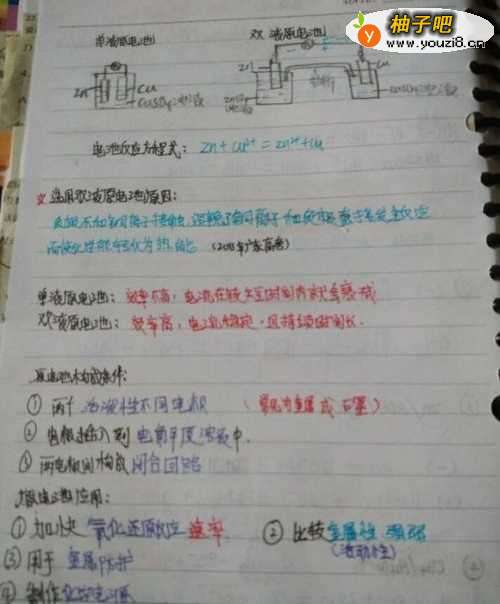 柚子吧
www.youzi8.cn
单液原电池 双液原电池
Zn Cu
CuSO4溶液
Zn Cu
CuSO4溶液
电池反应方程式：Zn+Cu²⁺=Zn²⁺+Cu
选用双液原电池原因：
(2013年广东高考)
单液原电池：效率不高，电流在较短时间内就会衰减
双液原电池：效率高，电流稳定，且持续时间长.
原电池构成条件：
① 两个活泼性不同电极 (常见为金属或石墨)
② 电极插入到电解质溶液中.
③ 两电极间构成闭合回路
原电池应用：
① 加快氧化还原反应速率 ② 比较金属性强弱
(活动性)
③ 用于金属防护
④ 制作化学电源